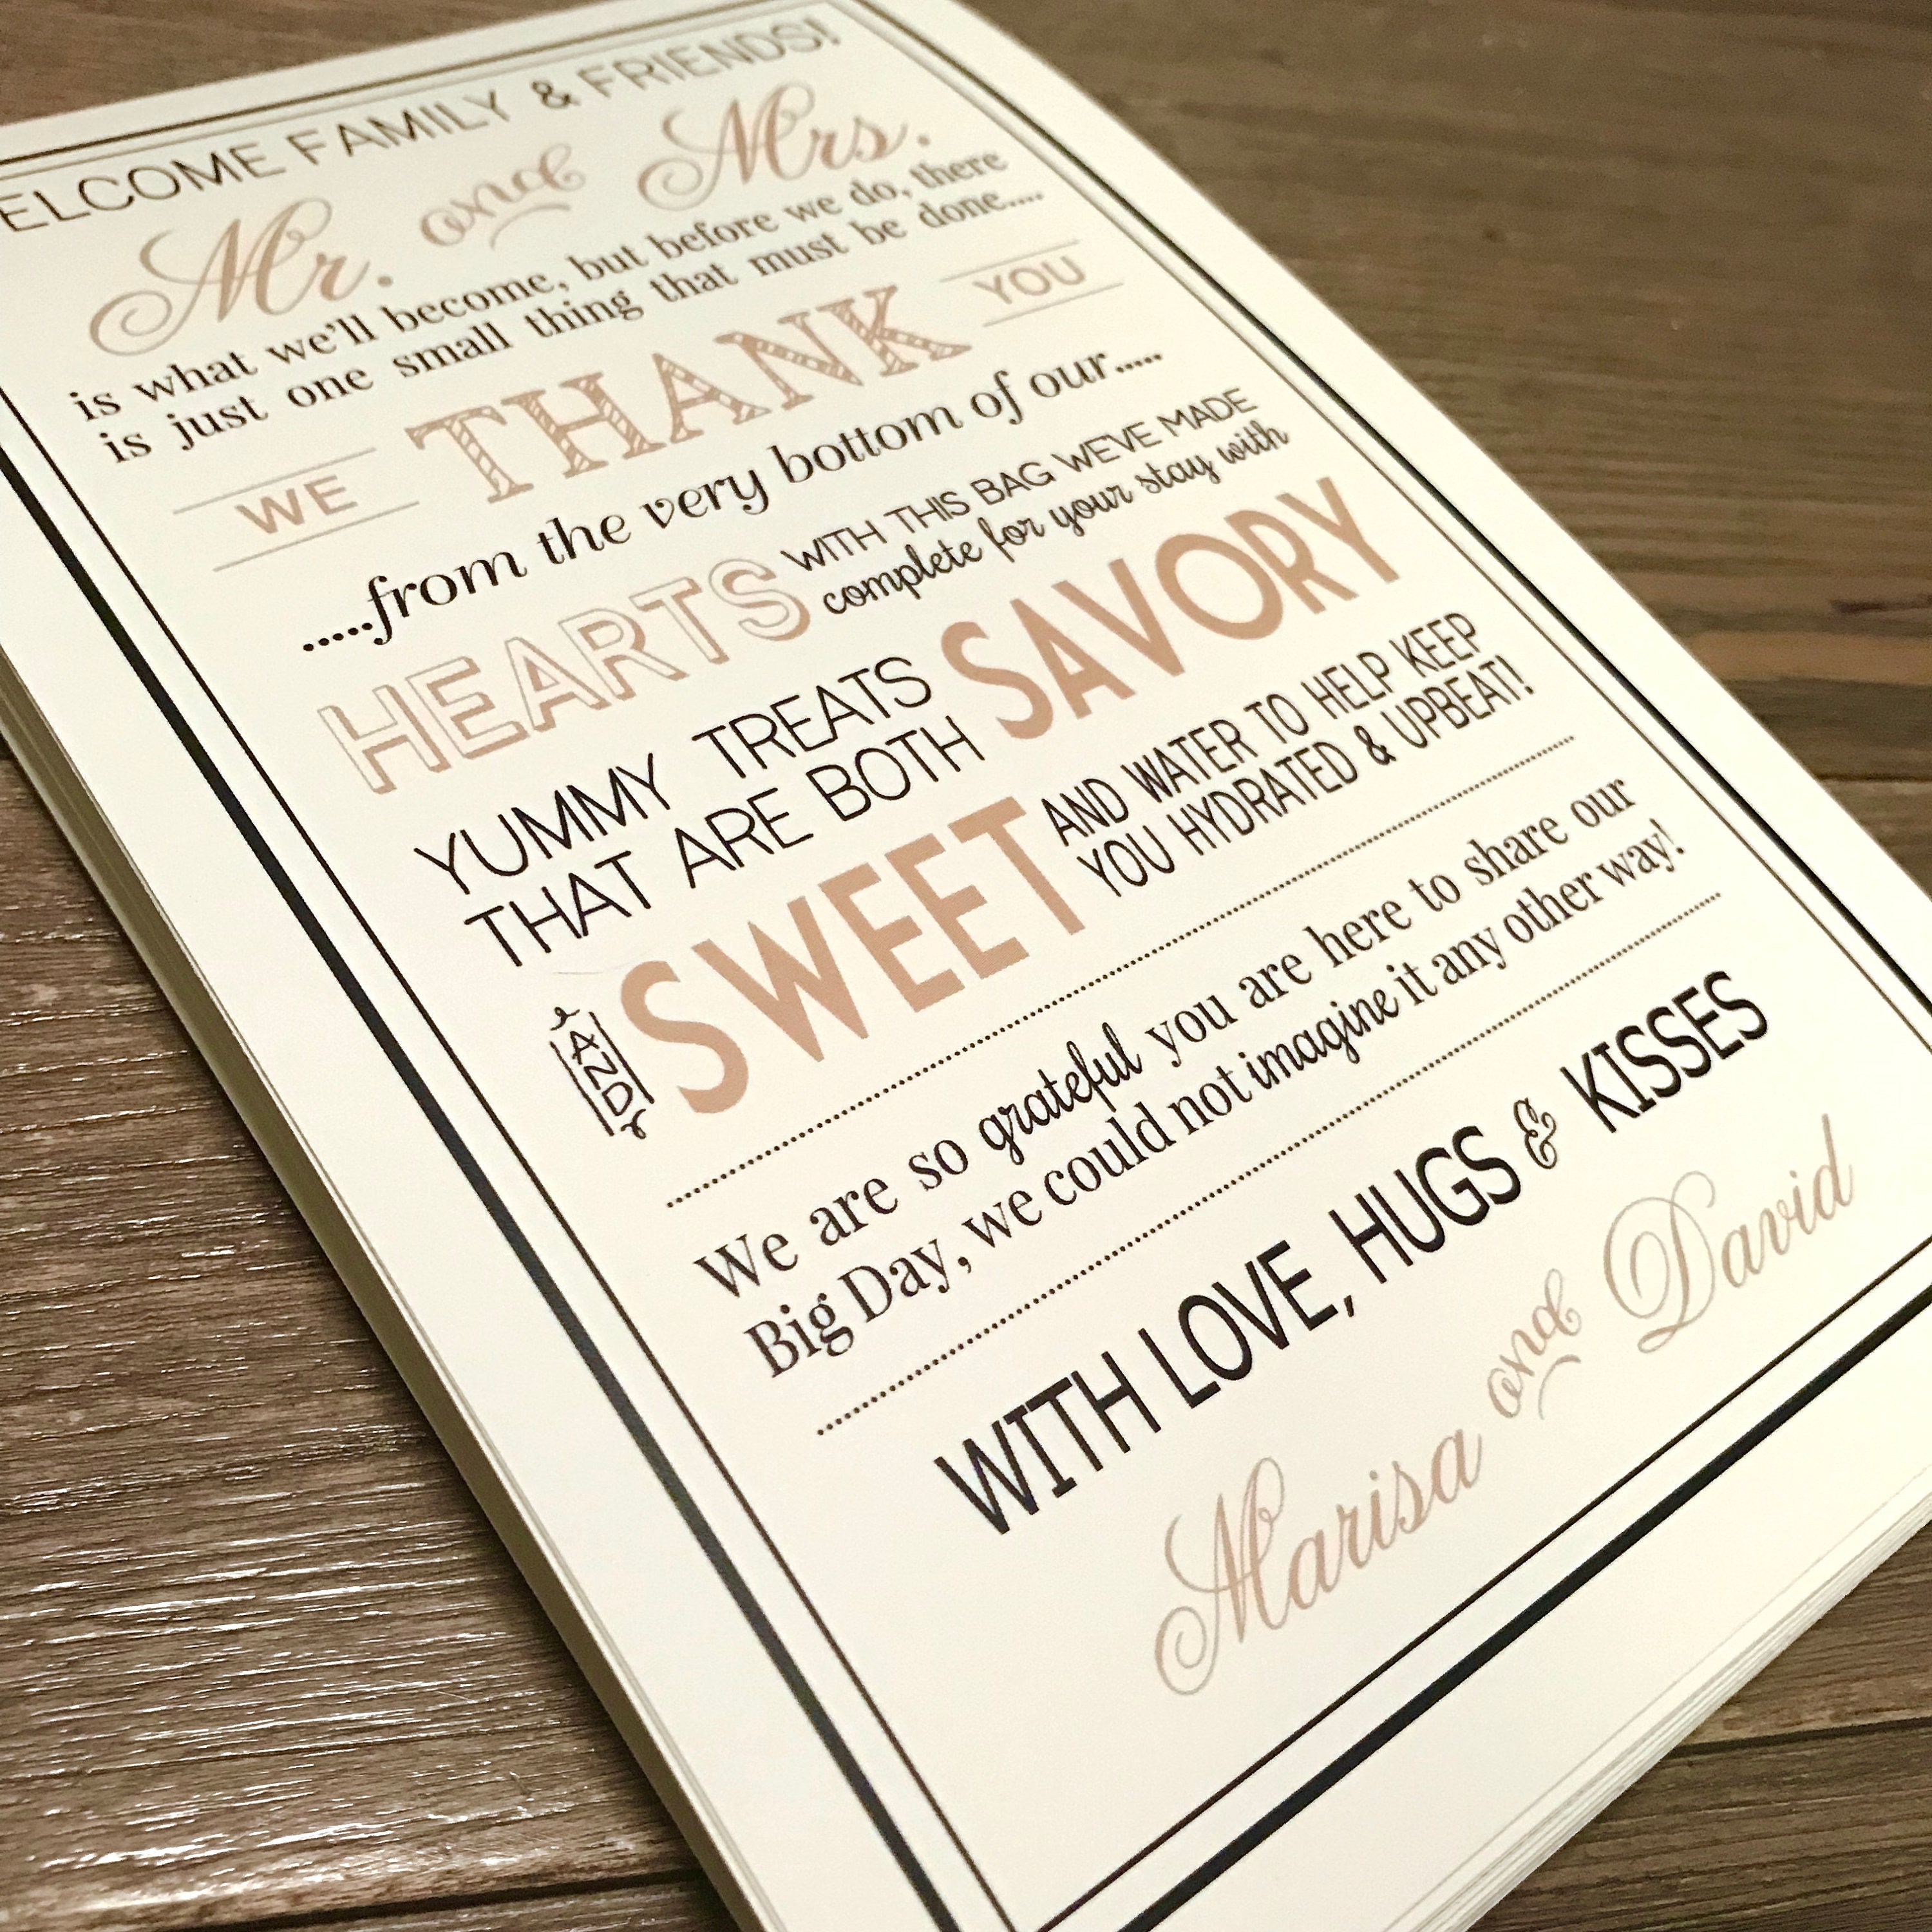 ELCOME FAMILY & FRIENDS!
Mr. and Mrs.
is what we'll become, but before we do, there
is just one small thing that must be done....
WE THANK YOU
.....from the very bottom of our.....
HEARTS WITH THIS BAG WE'VE MADE
complete for your stay with
YUMMY TREATS
THAT ARE BOTH SAVORY
AND SWEET AND WATER TO HELP KEEP
YOU HYDRATED & UPBEAT!
We are so grateful you are here to share our
Big Day, we could not imagine it any other way!
WITH LOVE, HUGS & KISSES
Marisa and David